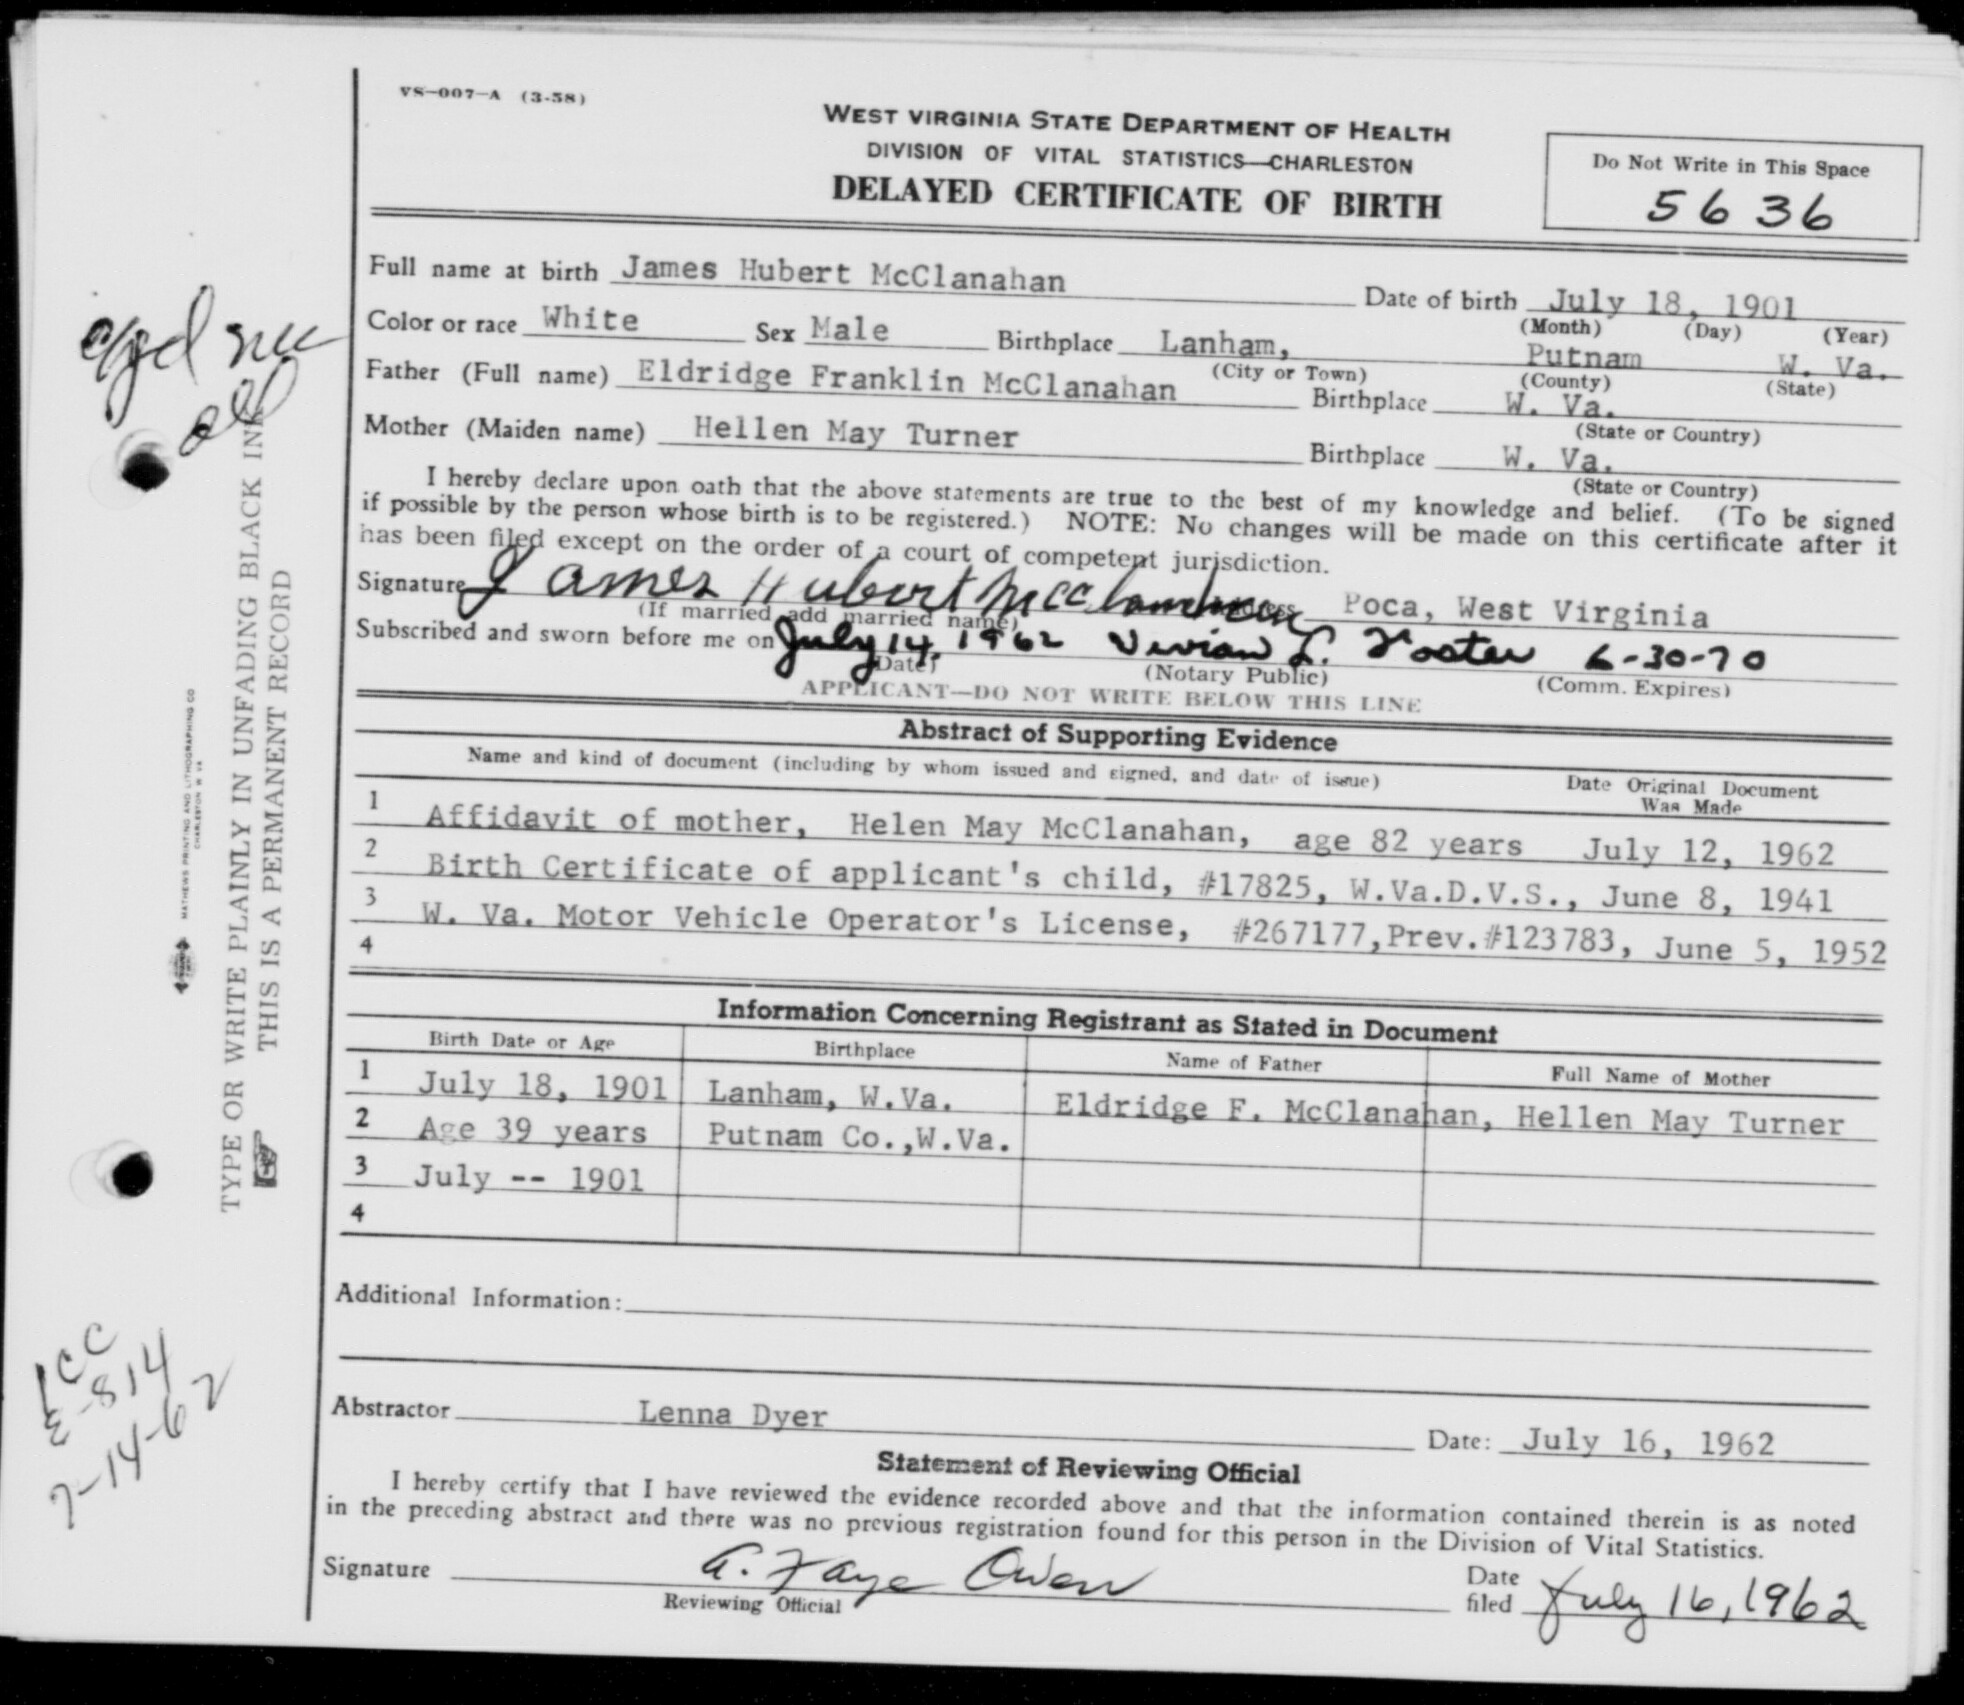 VS-007-A (3-58)
WEST VIRGINIA STATE DEPARTMENT OF HEALTH
DIVISION OF VITAL STATISTICS—CHARLESTON
DELAYED CERTIFICATE OF BIRTH
Do Not Write in This Space
5636
Full name at birth James Hubert McClanahan Date of birth July 18, 1901
(Month) (Day) (Year)
Color or race White Sex Male Birthplace Lanham, Putnam W. Va.
(City or Town) (County) (State)
Father (Full name) Eldridge Franklin McClanahan Birthplace W. Va.
(State or Country)
Mother (Maiden name) Hellen May Turner Birthplace W. Va.
(State or Country)
I hereby declare upon oath that the above statements are true to the best of my knowledge and belief. (To be signed
if possible by the person whose birth is to be registered.) NOTE: No changes will be made on this certificate after it
has been filed except on the order of a court of competent jurisdiction.
Signature James Hubert McClanahan Poca, West Virginia
(If married add married name)
Subscribed and sworn before me on July 14, 1962 Vivian L. Foster 6-30-70
(Date) (Notary Public) (Comm. Expires)
APPLICANT—DO NOT WRITE BELOW THIS LINE
Abstract of Supporting Evidence
Name and kind of document (including by whom issued and signed, and date of issue) Date Original Document
Was Made
1 Affidavit of mother, Helen May McClanahan, age 82 years July 12, 1962
2 Birth Certificate of applicant's child, #17825, W.Va.D.V.S., June 8, 1941
3 W. Va. Motor Vehicle Operator's License, #267177,Prev.#123783, June 5, 1952
4
Information Concerning Registrant as Stated in Document
Birth Date or Age Birthplace Name of Father Full Name of Mother
1 July 18, 1901 Lanham, W.Va. Eldridge F. McClanahan, Hellen May Turner
2 Age 39 years Putnam Co.,W.Va.
3 July -- 1901
4
Additional Information:
Abstractor Lenna Dyer Date: July 16, 1962
Statement of Reviewing Official
I hereby certify that I have reviewed the evidence recorded above and that the information contained therein is as noted
in the preceding abstract and there was no previous registration found for this person in the Division of Vital Statistics.
Signature A. Faye Owen Date
filed July 16, 1962
Reviewing Official
TYPE OR WRITE PLAINLY IN UNFADING BLACK INK
THIS IS A PERMANENT RECORD
MATHEWS PRINTING AND LITHOGRAPHING CO
CHARLESTON W VA
1CC
E-814
7-14-62